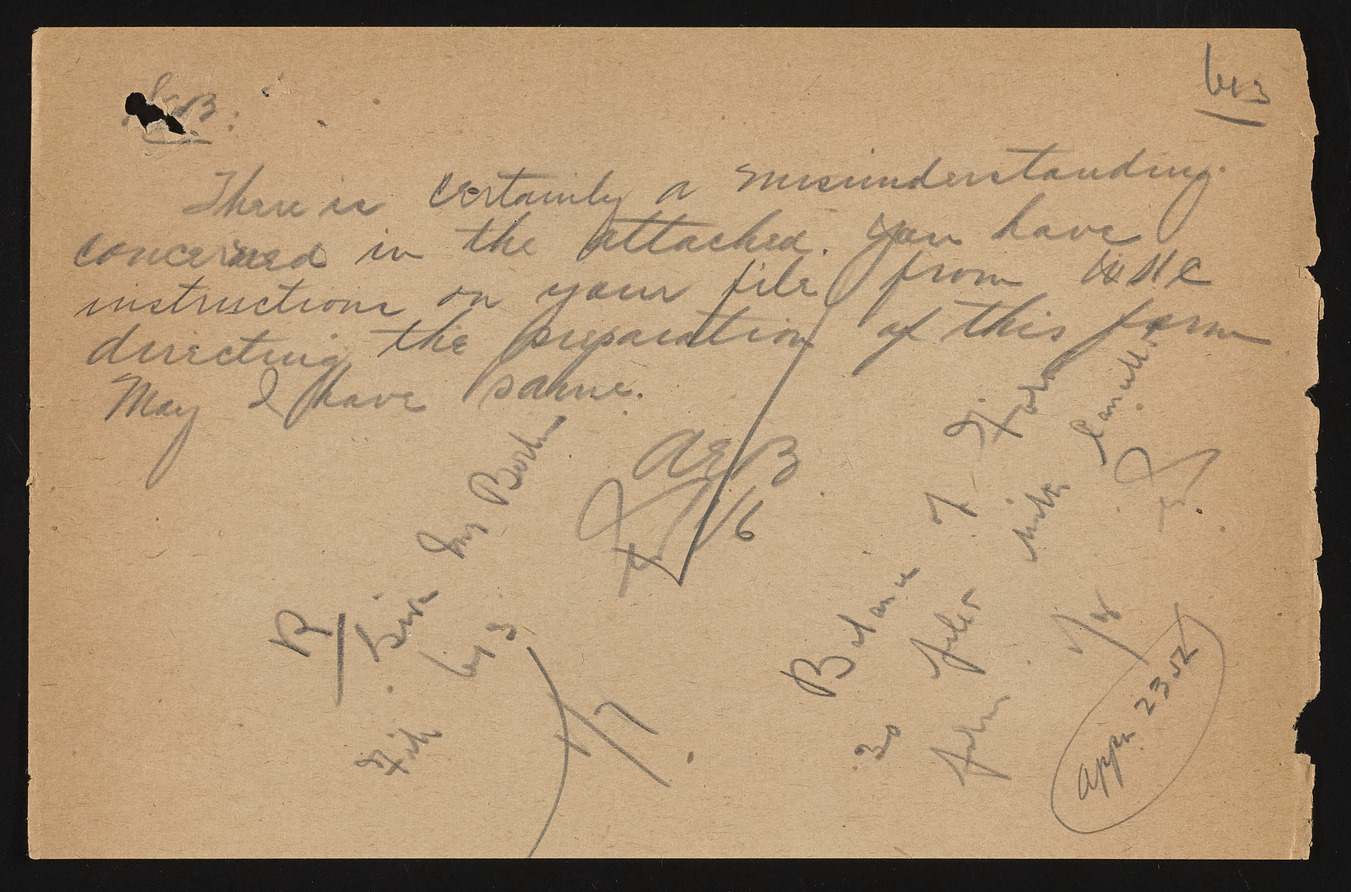 613
B:
There is certainly a misunderstanding
concerned in the attached. You have
instructions on your file from WHC
directing the preparation of this form
May I have same.
AEB
1/6
R/ Give Mrs
File 613
1/7
Balance of
30 files with
1/8
appr 2352